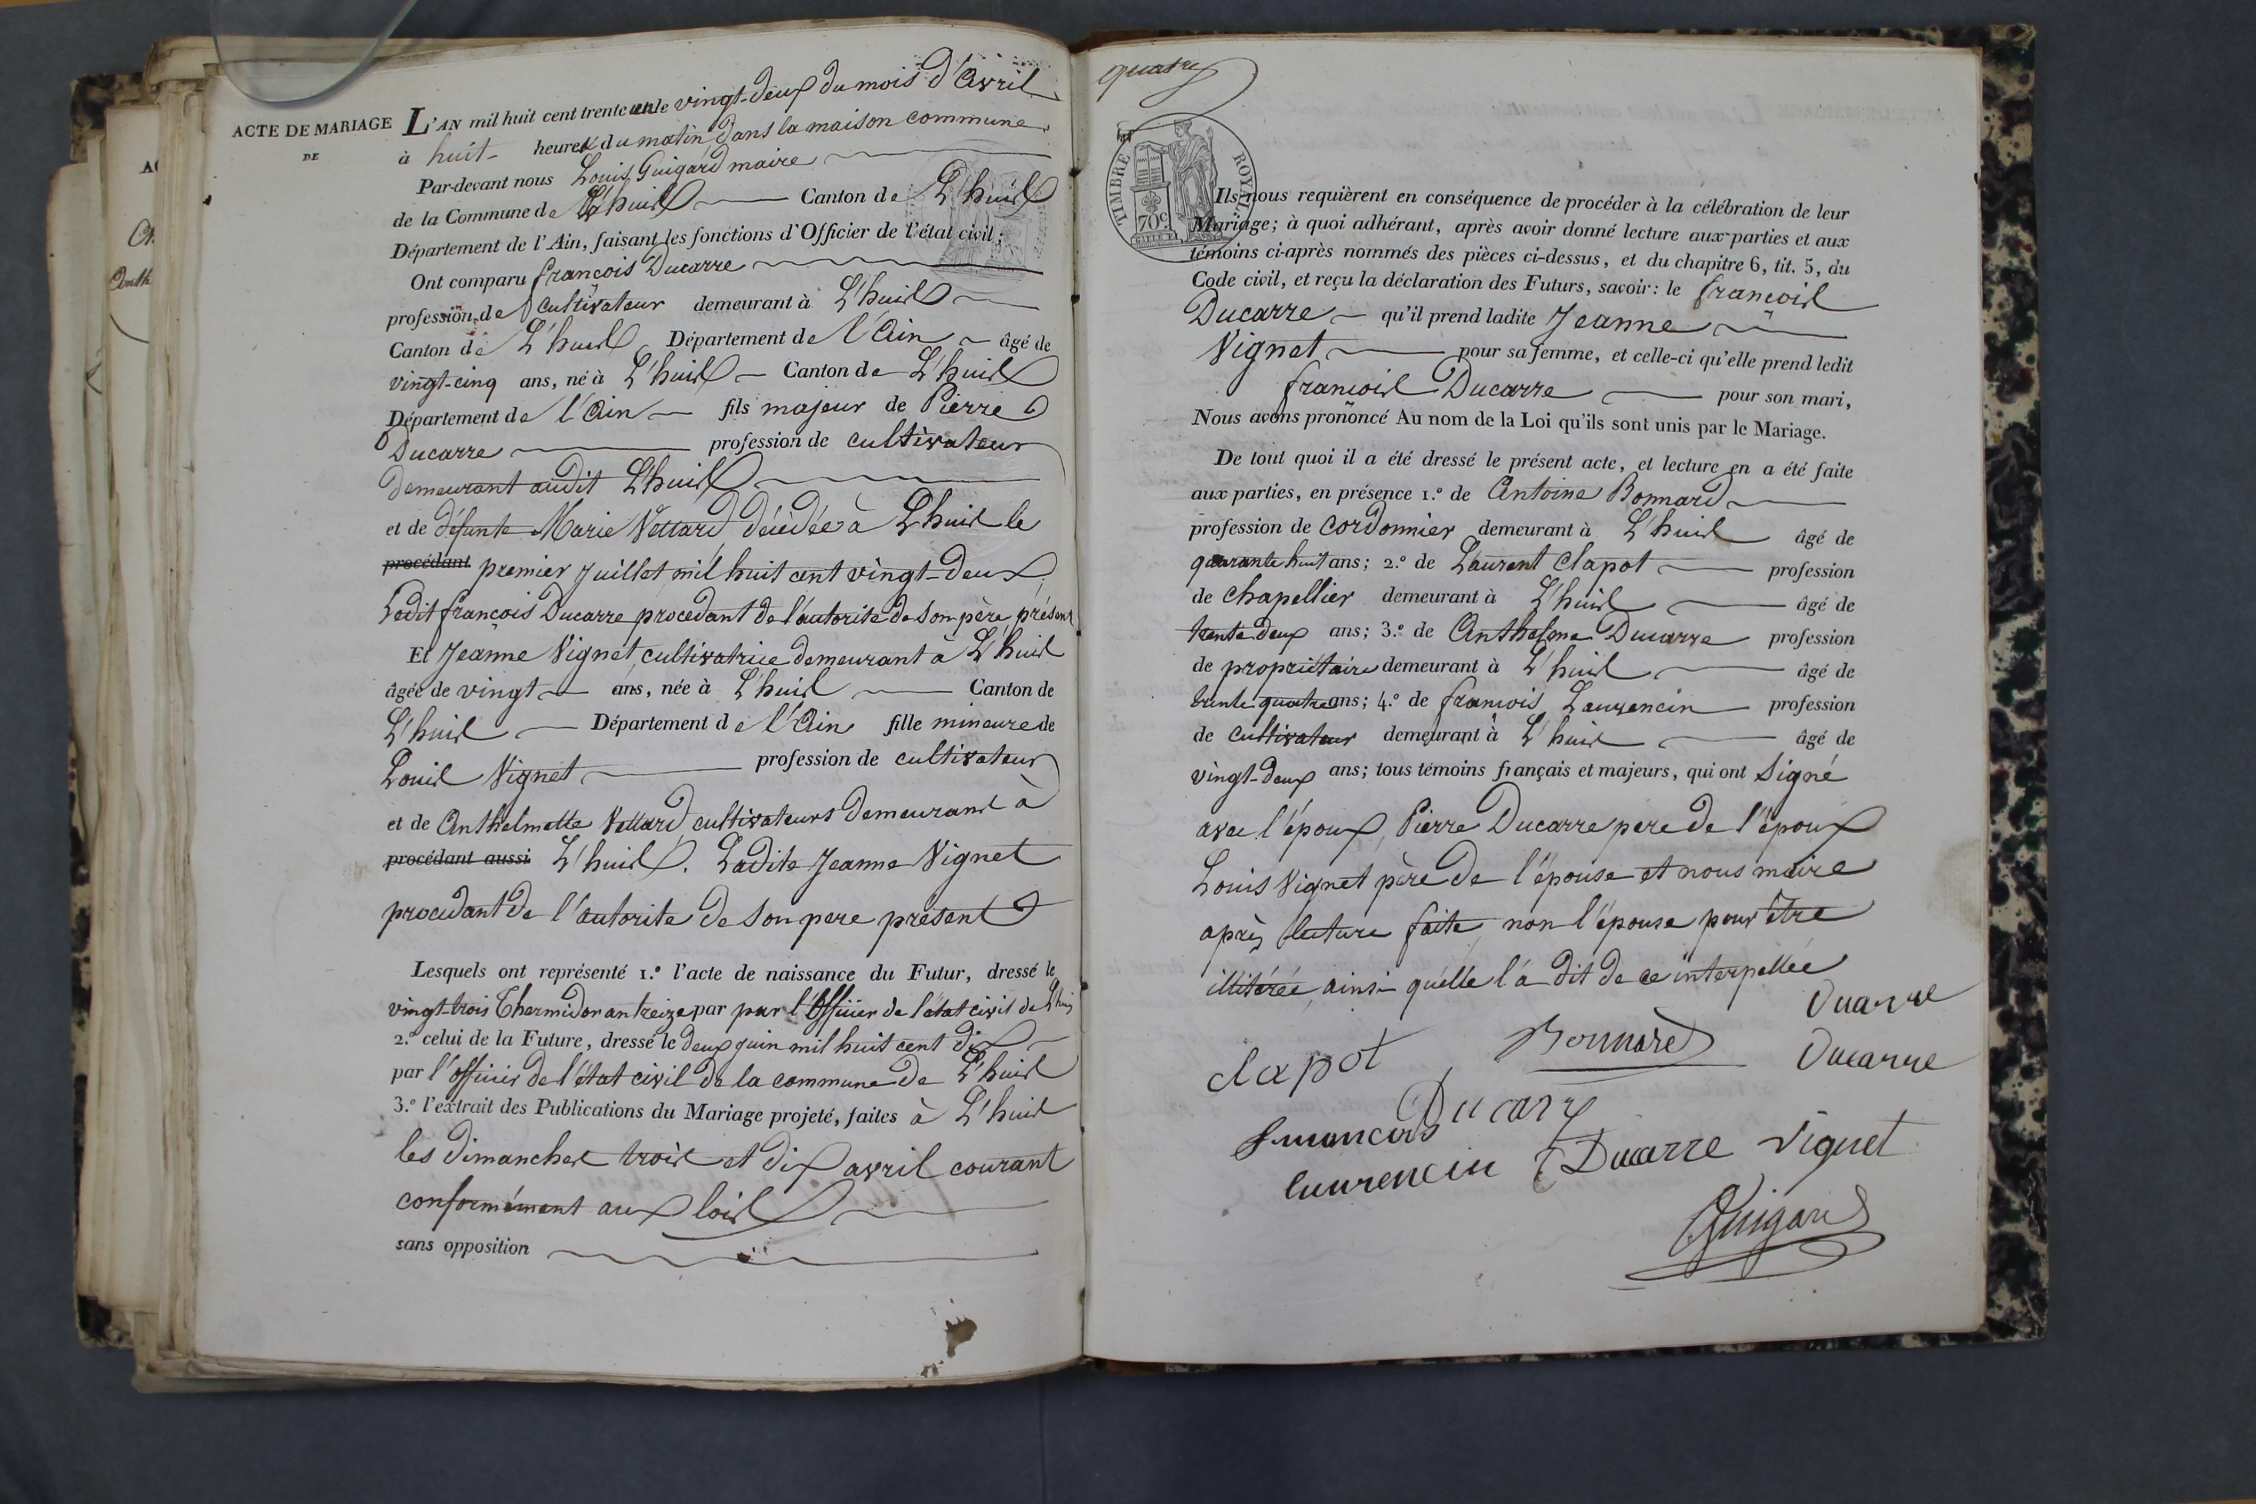 ACTE DE MARIAGE
DE
L'AN mil huit cent trente un le vingt-deux du mois d'Avril
à huit heures du matin dans la maison commune
Par-devant nous Louis Guigard maire
de la Commune de L'huis Canton de L'huis
Département de l'Ain, faisant les fonctions d'Officier de l'état civil;
Ont comparu françois Ducarre
profession de cultivateur demeurant à L'huis
Canton de L'huis Département de l'Ain âgé de
vingt-cinq ans, né à L'huis Canton de L'huis
Département de l'Ain fils majeur de Pierre
Ducarre profession de cultivateur
demeurant audit L'huis
et de défunte Marie Vettard décédée à L'huis le
procédant premier Juillet mil huit cent vingt-deux
Ledit françois Ducarre procédant de l'autorité de son père présent
Et Jeanne Vignet cultivatrice demeurant à L'huis
âgée de vingt ans, née à L'huis Canton de
L'huis Département de l'Ain fille mineure de
Louis Vignet profession de cultivateur
et de Anthelmette Vettard cultivateurs demeurant à
procédant aussi L'huis. Ladite Jeanne Vignet
procedant de l'autorite de son pere présent
Lesquels ont représenté 1.º l'acte de naissance du Futur, dressé le
vingt-trois Thermidor an treize par par l'Officier de l'état civil de Lhuis
2.º celui de la Future, dressé le deux juin mil huit cent dix
par l'officier de l'état civil de la commune de L'huis
3.º l'extrait des Publications du Mariage projeté, faites à L'huis
les dimanches trois et dix avril courant
conformément aux lois
sans opposition
quatre
TIMBRE ROYAL
70c.
Ils nous requièrent en conséquence de procéder à la célébration de leur
Mariage; à quoi adhérant, après avoir donné lecture aux parties et aux
témoins ci-après nommés des pièces ci-dessus, et du chapitre 6, tit. 5, du
Code civil, et reçu la déclaration des Futurs, savoir: le françois
Ducarre qu'il prend ladite Jeanne
Vignet pour sa femme, et celle-ci qu'elle prend ledit
francois Ducarre pour son mari,
Nous avons prononcé Au nom de la Loi qu'ils sont unis par le Mariage.
De tout quoi il a été dressé le présent acte, et lecture en a été faite
aux parties, en présence 1.º de Antoine Bonnard
profession de cordonnier demeurant à L'huis âgé de
quarante huit ans; 2.º de Laurent Clapot profession
de chapellier demeurant à L'huis âgé de
trente deux ans; 3.º de Anthelme Ducarre profession
de propriétaire demeurant à L'huis âgé de
trente quatre ans; 4.º de françois Laurencin profession
de cultivateur demeurant à L'huis âgé de
vingt-deux ans; tous témoins français et majeurs, qui ont signé
avec l'époux, Pierre Ducarre pere de l'époux
Louis Vignet père de l'épouse et nous maire
après lecture faite, non l'épouse pour être
illitérée, ainsi quelle l'a dit de ce interpellée
Ducarre
clapot Bonnard Ducarre
Ducarre
francois
laurencin Ducarre Vignet
Guigard